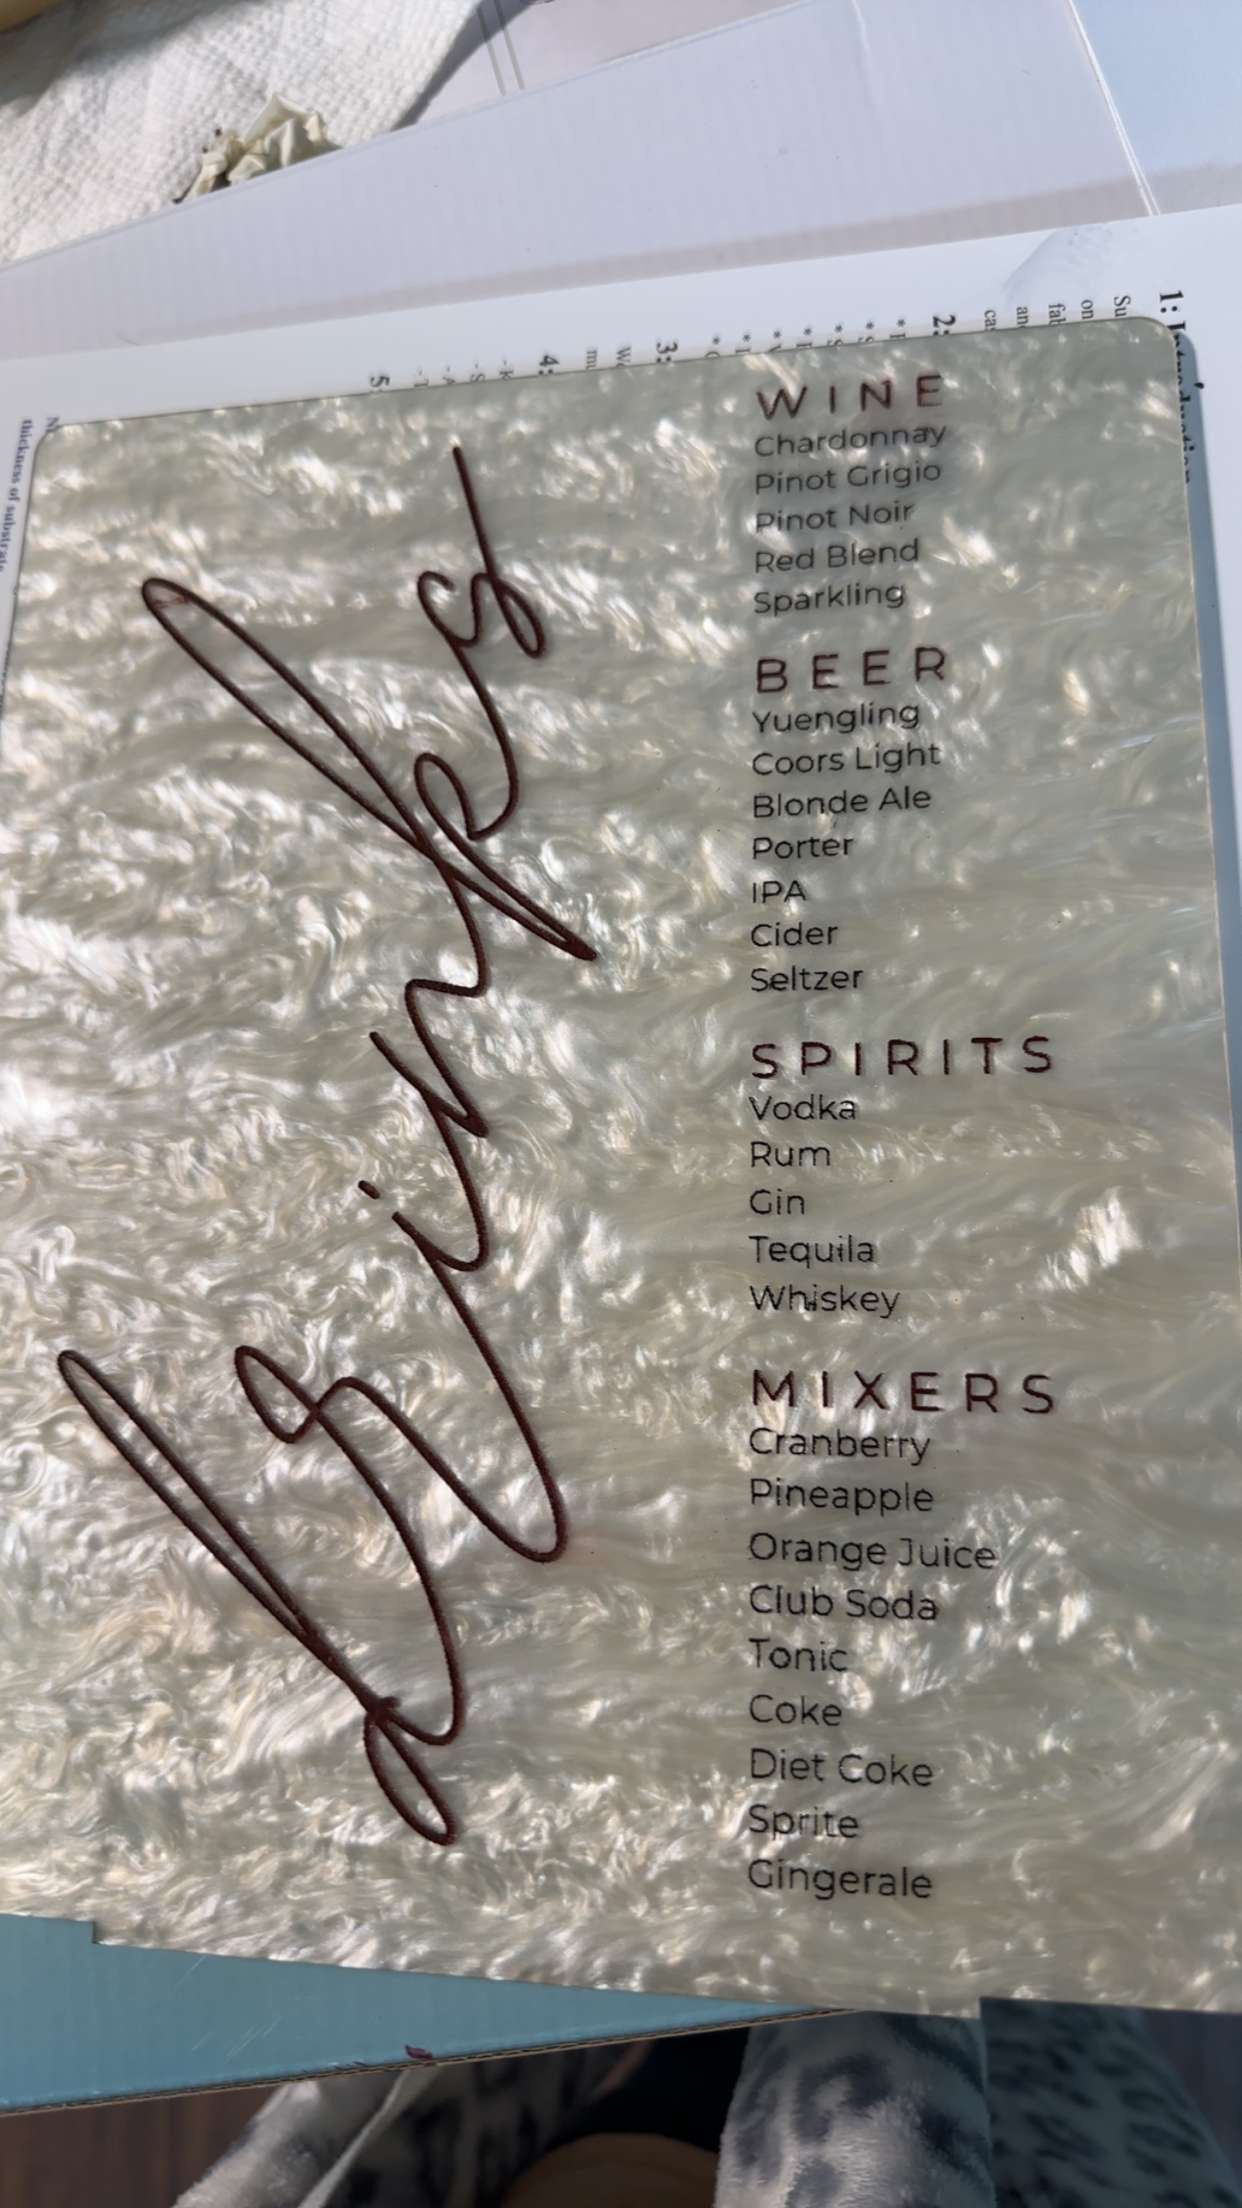 drinks
WINE
Chardonnay
Pinot Grigio
Pinot Noir
Red Blend
Sparkling
BEER
Yuengling
Coors Light
Blonde Ale
Porter
IPA
Cider
Seltzer
SPIRITS
Vodka
Rum
Gin
Tequila
Whiskey
MIXERS
Cranberry
Pineapple
Orange Juice
Club Soda
Tonic
Coke
Diet Coke
Sprite
Gingerale
1: Introduction
Su
on
fab
and
2:
3:
4:
5:
thickness of substrate